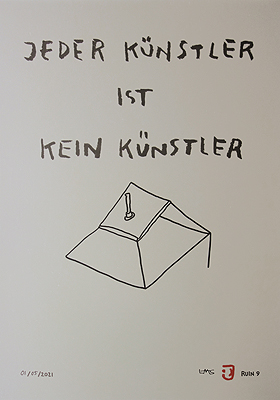 JEDER KÜNSTLER
IST
KEIN KÜNSTLER
01/05/2021
RUIN 9